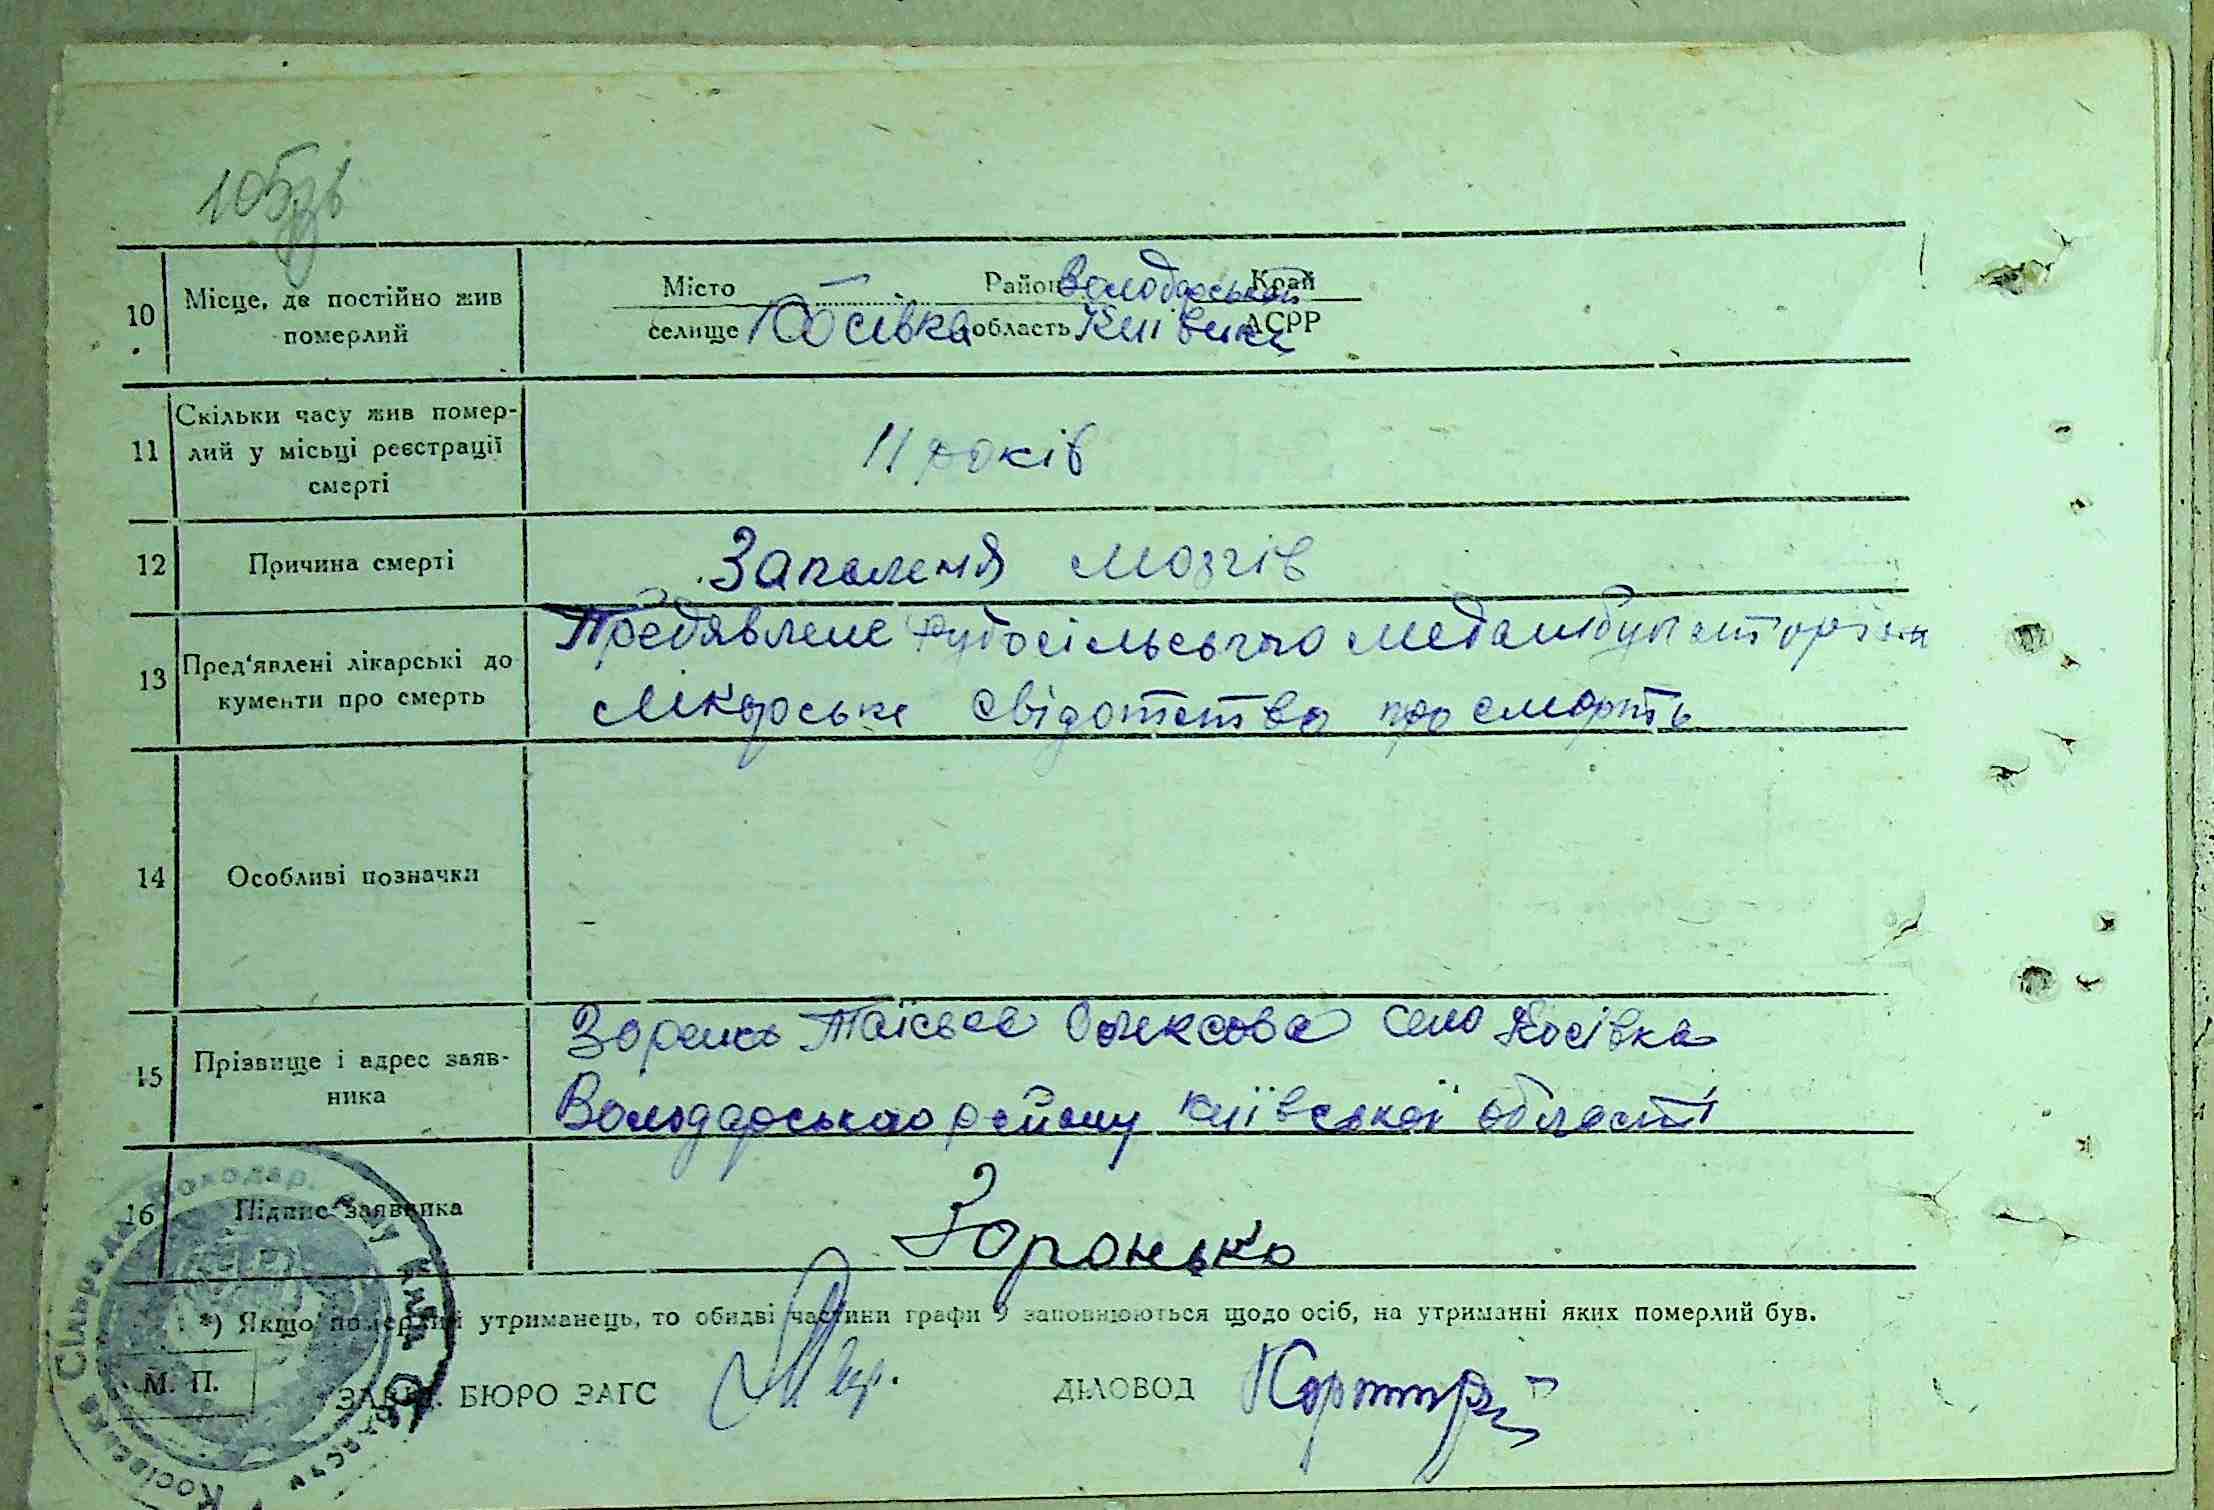 105зв
10 Місце, де постійно жив померлий
Місто — Район Володарський Край
селище Косівка область Київська АСРР
11 Скільки часу жив помер-
лий у місьці реєстрації
смерті
11 років
12 Причина смерті
Запаленя мозгів
13 Пред'явлені лікарські до
кументи про смерть
Предявлене медамбулаторією
лікарське свідотство про смерть
14 Особливі позначки
15 Прізвище і адрес заяв-
ника
Таїсья село Косівка
Володарського району Київської області
16 Підпис заявника
Зоронько
*) Якщо померлий утриманець, то обидві частини графи 9 заповнюються щодо осіб, на утриманні яких померлий був.
М. П.
ЗАВІД. БЮРО ЗАГС
ДІЛОВОД
Косівська Сільрада Володар. р-ну Київ. Області